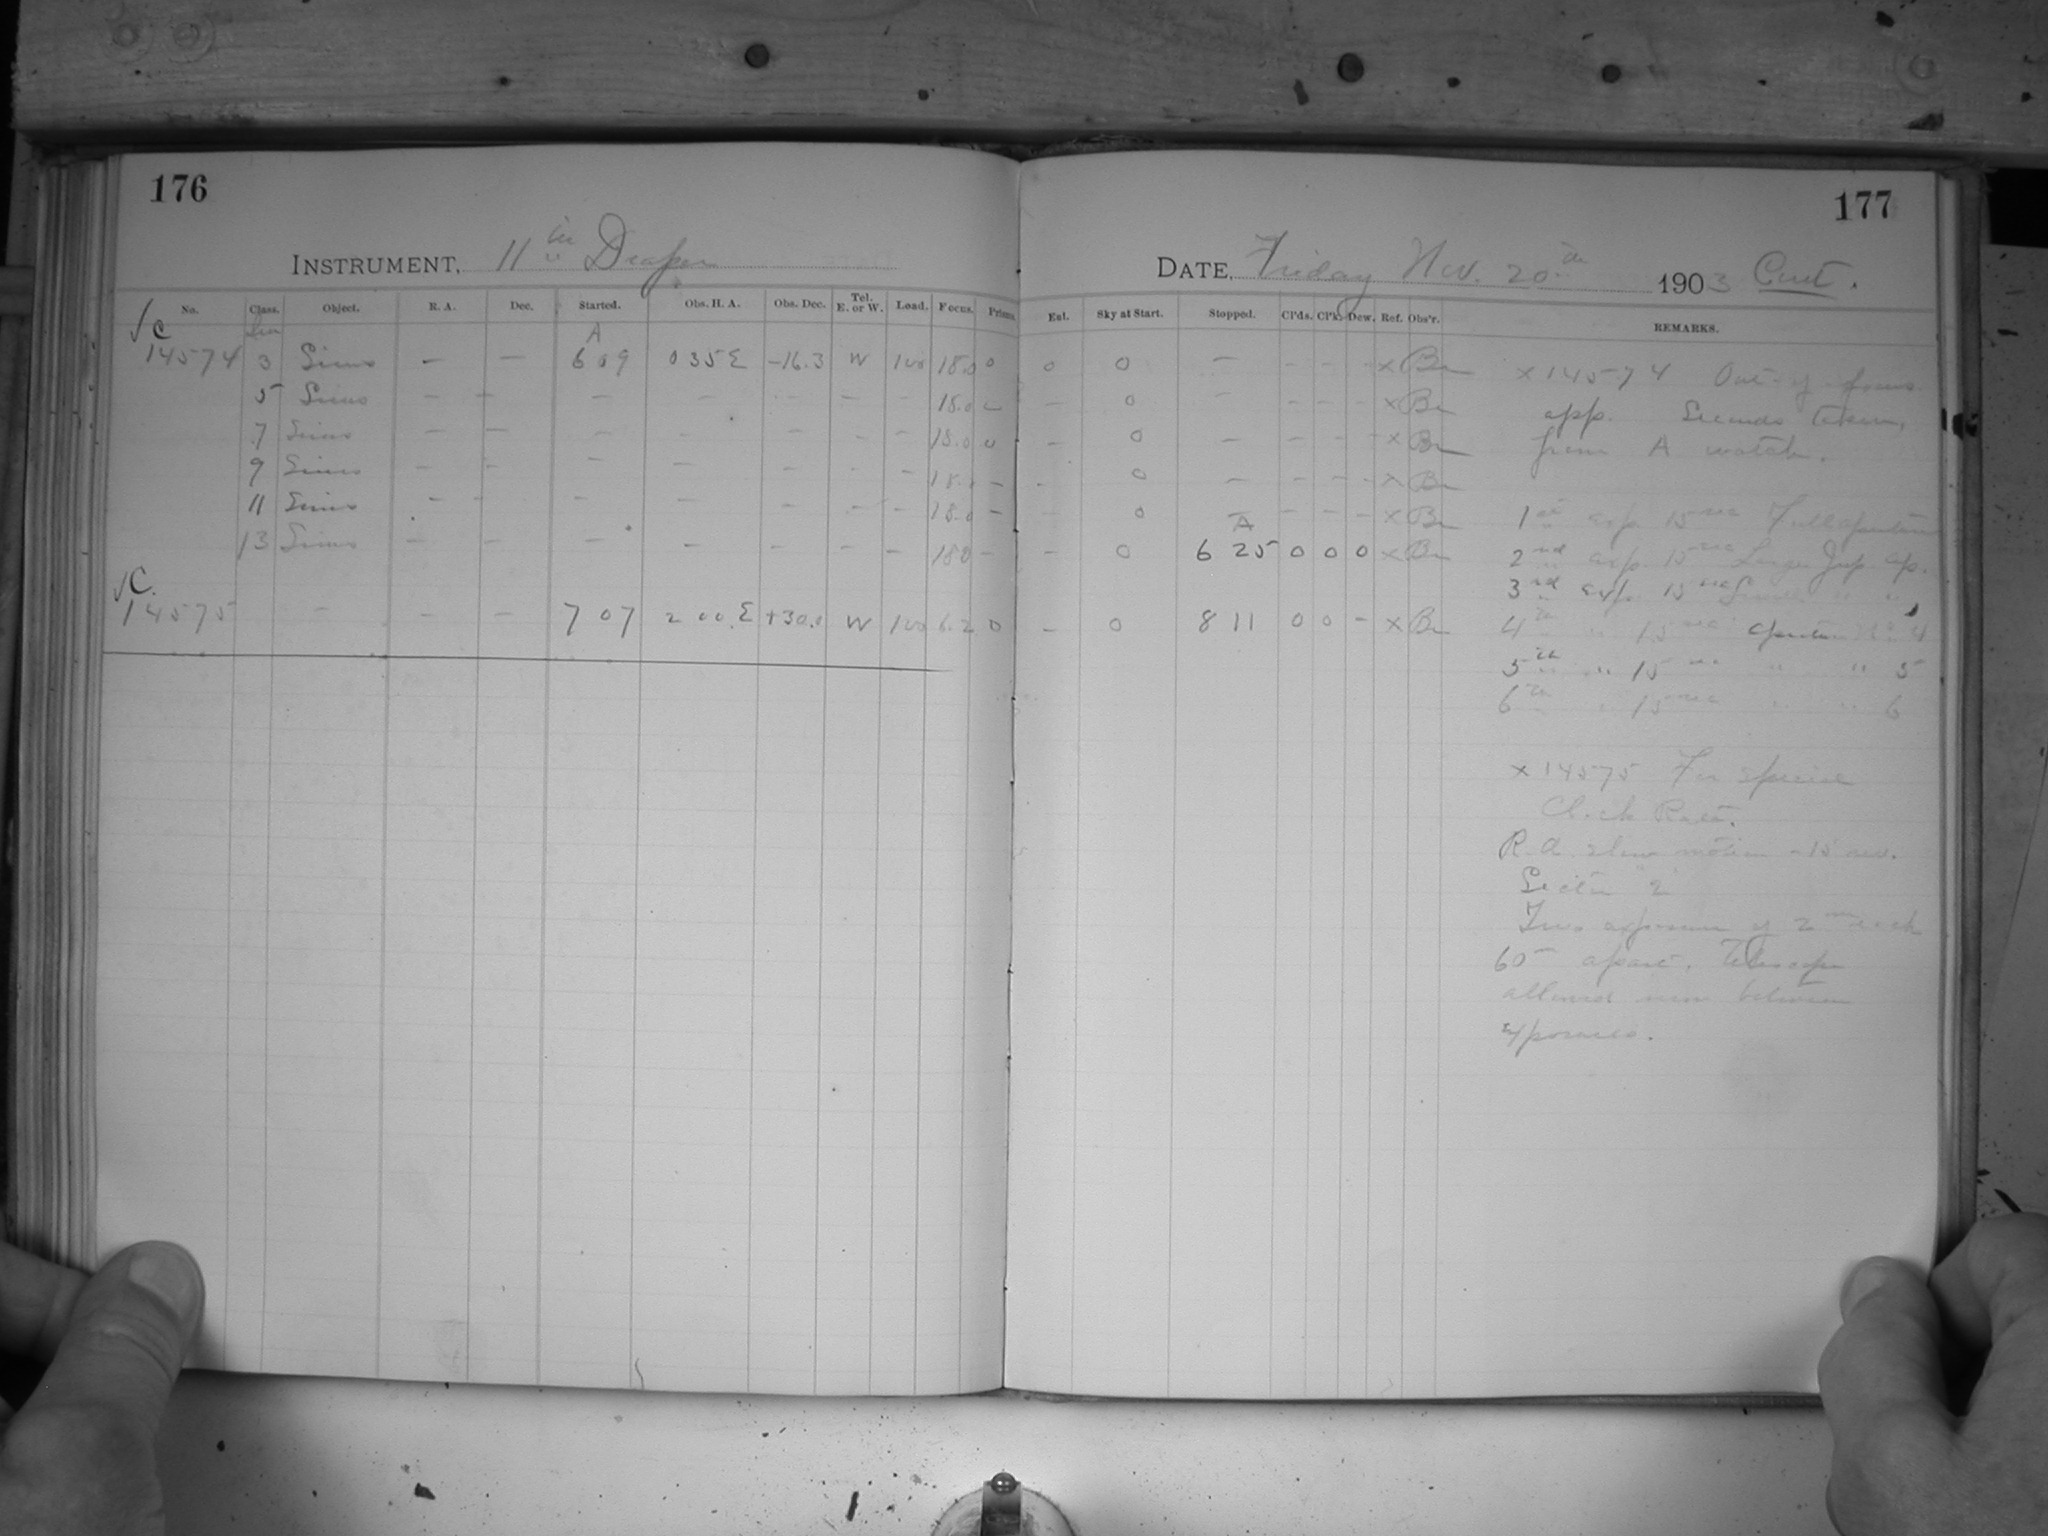 176
INSTRUMENT, 11 in Draper
No. Class. Object. R. A. Dec. Started. Obs. H. A. Obs. Dec. Tel. E. or W. Load. Focus. Prisms.
√C A
14574 3 Sirius — — 6 09 0 35 E -16.3 W 100 18.0 0
5 Sirius — — — — — — — 18.0
7 Sirius — — — — — — — 18.0
9 Sirius — — — — — — — 18.0 —
11 Sirius — — — — — — — 18.0 —
13 Sirius — — — — — — — 18.0 —
√C.
14575 — — — 7 07 2 00 E +30.0 W 100 6.2 0
177
DATE, Friday Nov. 20th 1903 Cont.
Ent. Sky at Start. Stopped. Cl'ds. Cl'k. Dew. Ref. Obs'r. REMARKS.
0 0 — — — — x Bn
— 0 — — — — x Bn
— 0 — — — — x Bn
— 0 — — — — x Bn
— 0 — — — — x Bn
A
— 0 6 25 0 0 0 x Bn
— 0 8 11 0 0 — x Bn
x 14574 Out of focus
app. Seconds taken
from A watch.
1st exp. 15 sec Full aperture
2nd exp. 15 sec Large Jup. ap.
3rd exp. 15 sec Small " "
4th " 15 sec aperture No. 4
5th " 15 sec " " 5
6th " 15 sec " " 6
x 14575 For special
Clock Rate.
R. A. slow motion -15 rev.
Sector "2"
Two exposures of 2 m each
60 apart. Telescope
allowed run between
exposures.